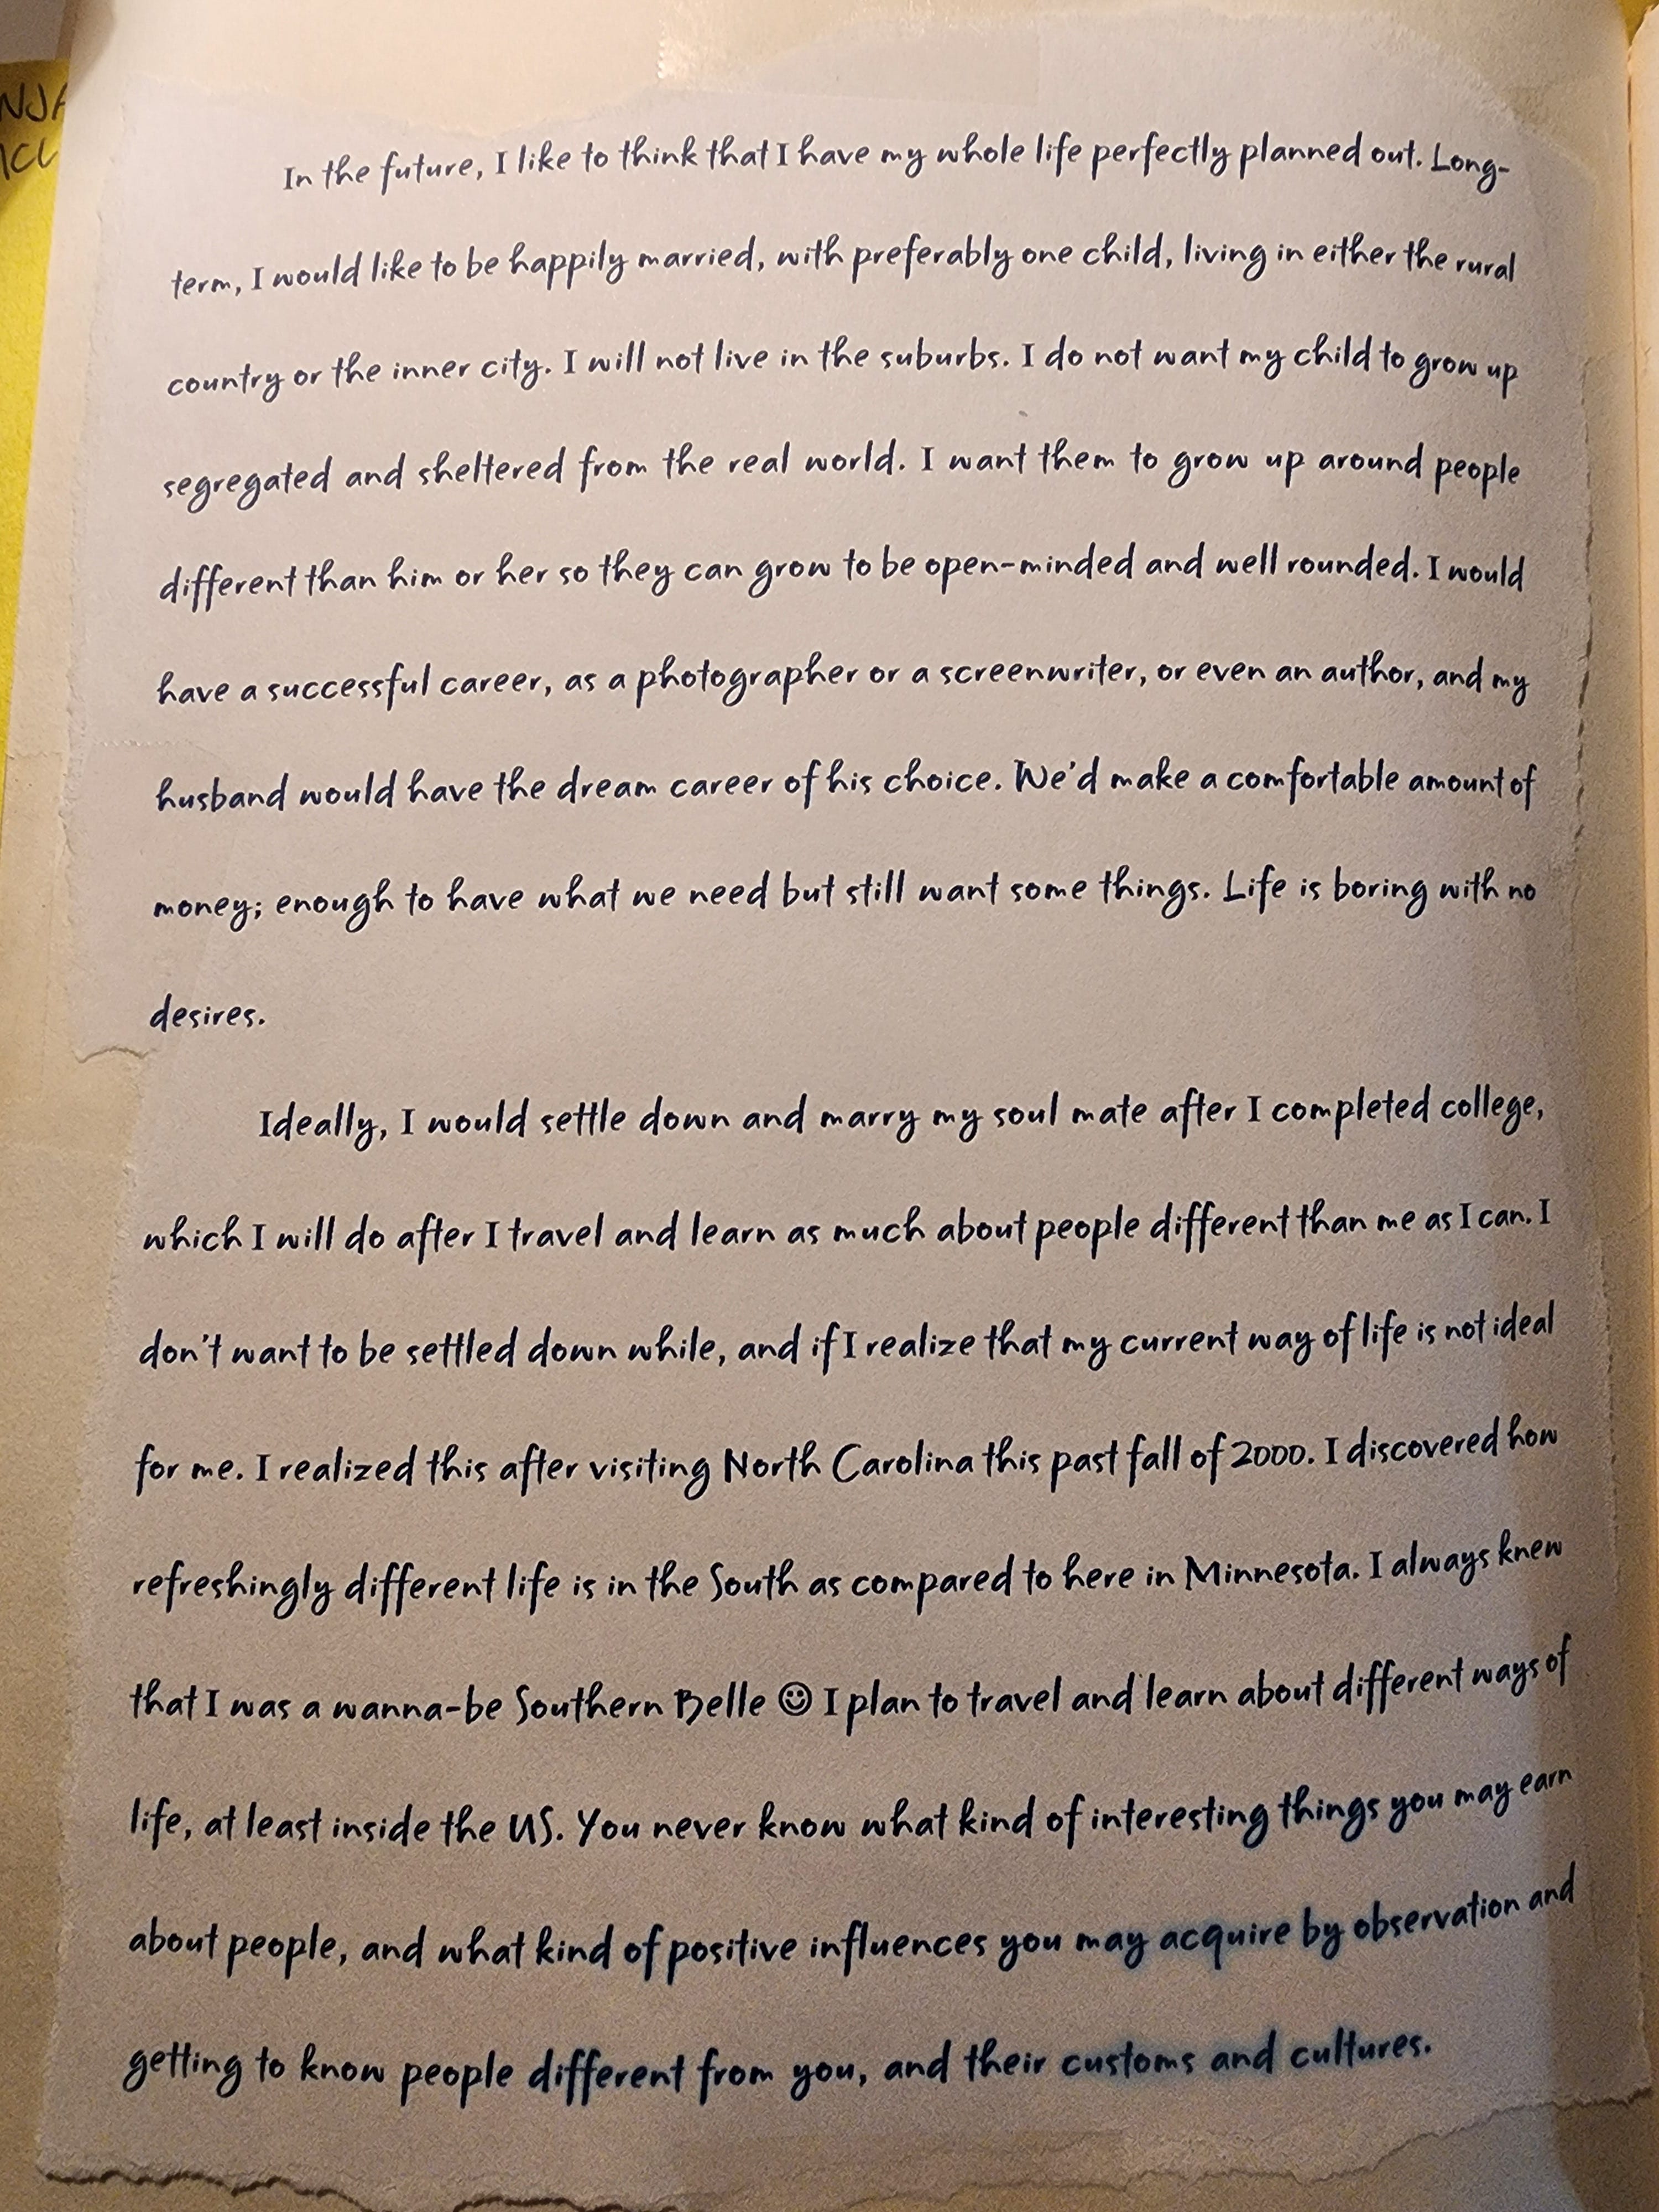 In the future, I like to think that I have my whole life perfectly planned out. Long-
term, I would like to be happily married, with preferably one child, living in either the rural
country or the inner city. I will not live in the suburbs. I do not want my child to grow up
segregated and sheltered from the real world. I want them to grow up around people
different than him or her so they can grow to be open-minded and well rounded. I would
have a successful career, as a photographer or a screenwriter, or even an author, and my
husband would have the dream career of his choice. We'd make a comfortable amount of
money; enough to have what we need but still want some things. Life is boring with no
desires.
Ideally, I would settle down and marry my soul mate after I completed college,
which I will do after I travel and learn as much about people different than me as I can. I
don't want to be settled down while, and if I realize that my current way of life is not ideal
for me. I realized this after visiting North Carolina this past fall of 2000. I discovered how
refreshingly different life is in the South as compared to here in Minnesota. I always knew
that I was a wanna-be Southern Belle ☺ I plan to travel and learn about different ways of
life, at least inside the US. You never know what kind of interesting things you may earn
about people, and what kind of positive influences you may acquire by observation and
getting to know people different from you, and their customs and cultures.